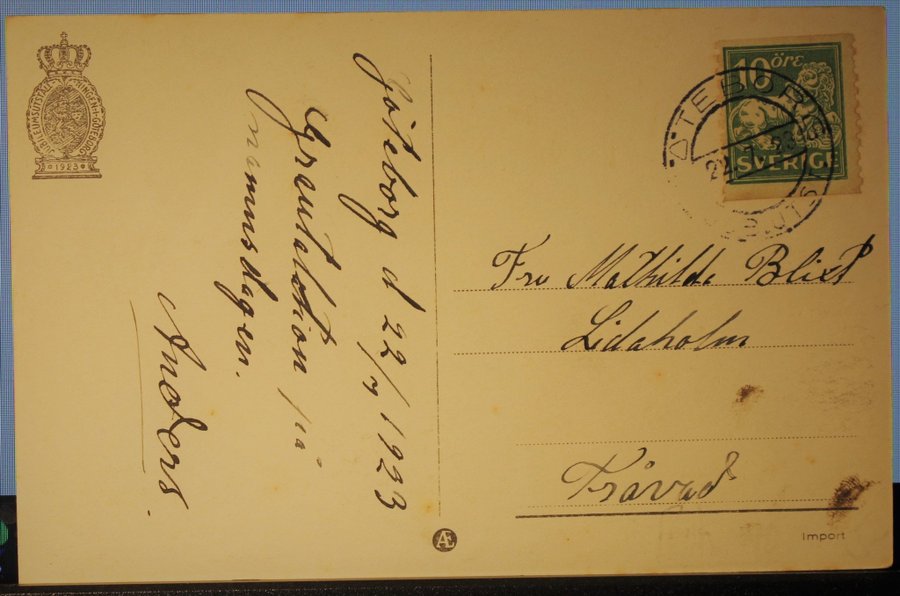 JUBILEUMSUTSTÄLLNINGEN·I·GÖTEBORG
1923
Göteborg d 22/7 1923
Gratulation på
namnsdagen.
Anders.
10 ÖRE
SVERIGE
22
Fru Mathilda Blixt
Lidaholm
Tråvad
Æ
Import